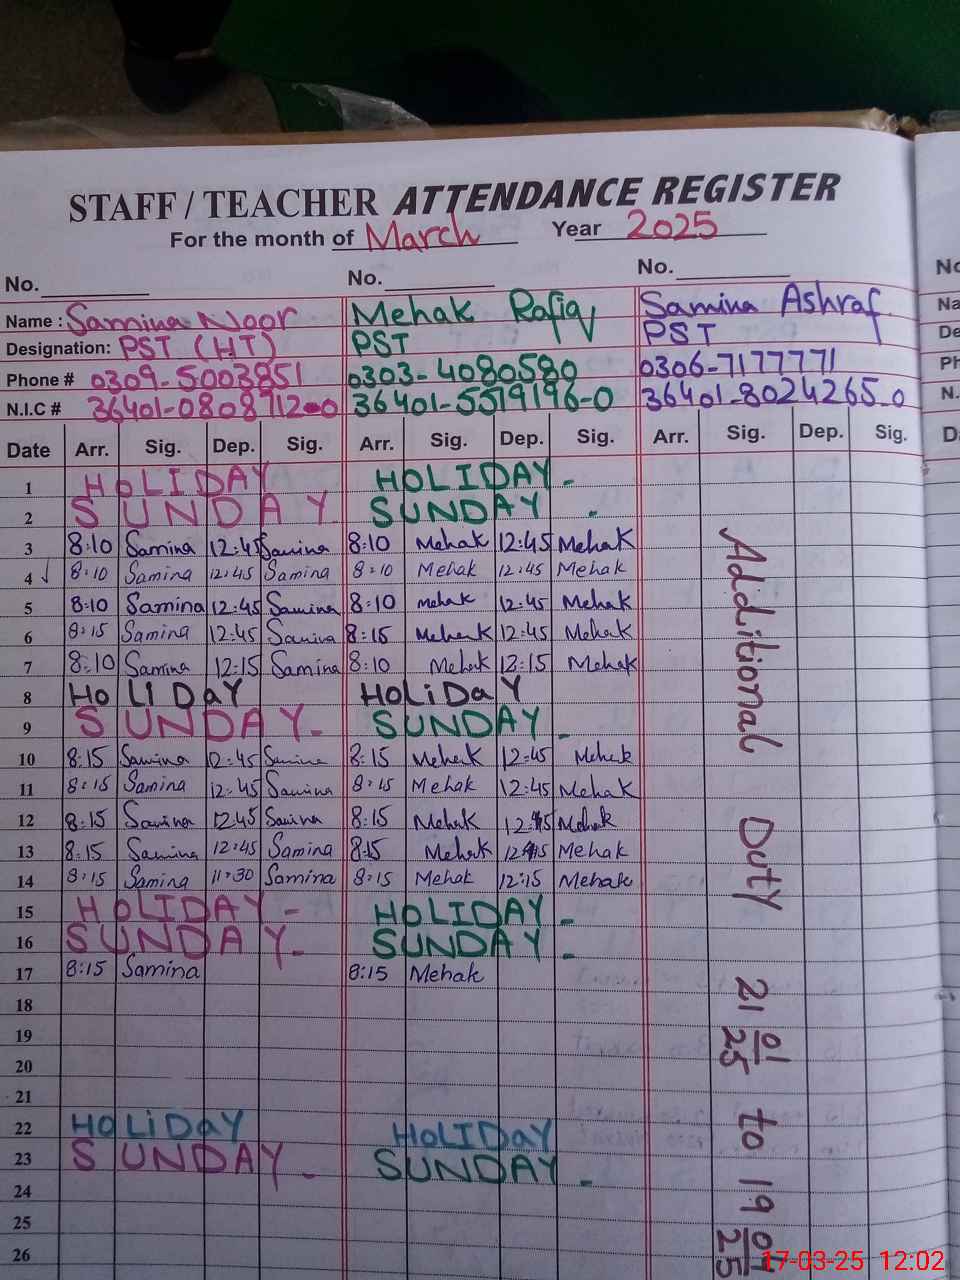 STAFF / TEACHER ATTENDANCE REGISTER
For the month of March Year 2025
No. No. No.
Name : Samina Noor Mehak Rafiq Samina Ashraf
Designation: PST (HT) PST PST
Phone # 0309-5003851 0303-4080580 0306-7177771
N.I.C # 36401-0808712-0 36401-5519196-0 36401-8024265-0
Date Arr. Sig. Dep. Sig. Arr. Sig. Dep. Sig. Arr. Sig. Dep. Sig.
1 HOLIDAY HOLIDAY -
2 SUNDAY SUNDAY -
3 8:10 Samina 12:45 Samina 8:10 Mehak 12:45 Mehak
4 8:10 Samina 12:45 Samina 8:10 Mehak 12:45 Mehak
5 8:10 Samina 12:45 Samina 8:10 Mehak 12:45 Mehak
6 8:15 Samina 12:45 Samina 8:15 Mehak 12:45 Mehak
7 8:10 Samina 12:15 Samina 8:10 Mehak 12:15 Mehak
8 HoLIDaY HoLiDaY
9 SUNDAY - SUNDAY -
10 8:15 Samina 12:45 Samina 8:15 Mehak 12:45 Mehak
11 8:15 Samina 12:45 Samina 8:15 Mehak 12:45 Mehak
12 8:15 Samina 12:45 Samina 8:15 Mehak 12:45 Mehak
13 8:15 Samina 12:45 Samina 8:15 Mehak 12:45 Mehak
14 8:15 Samina 11:30 Samina 8:15 Mehak 12:15 Mehak
15 HOLIDAY - HOLIDAY -
16 SUNDAY - SUNDAY -
17 8:15 Samina 8:15 Mehak
18
19
20
21
22 HOLiDaY HoLIDaY
23 SUNDAY - SUNDAY -
24
25
26
Additional Duty 21 01 25 to 19 25
17-03-25 12:02